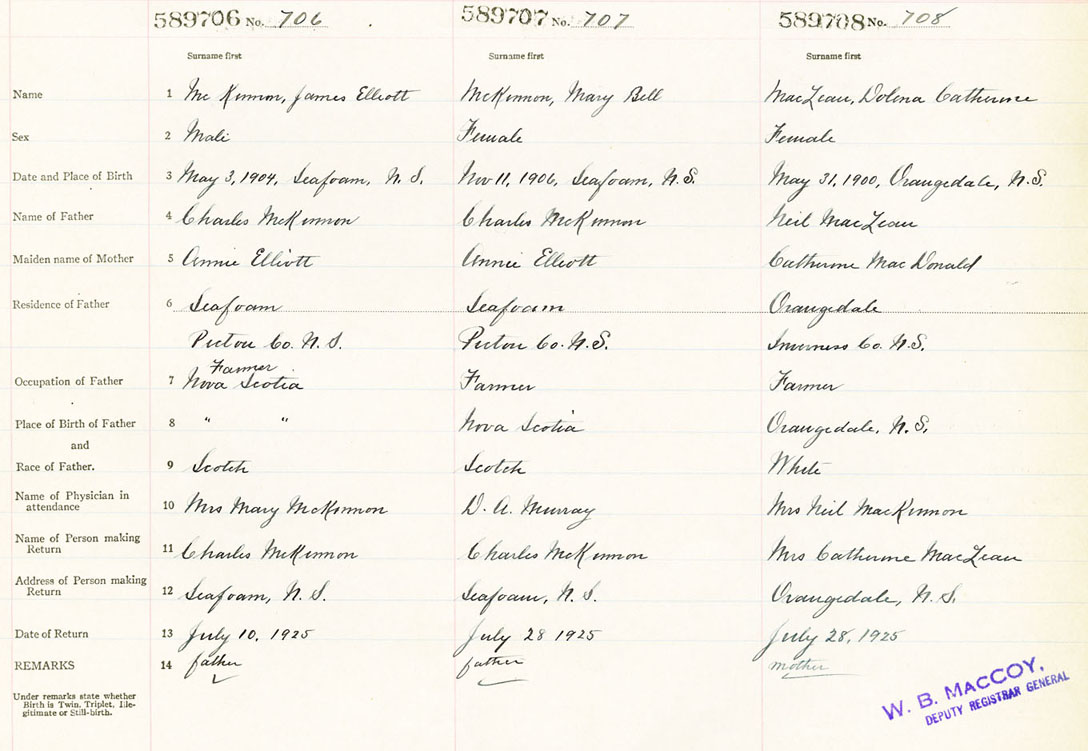 589706 No. 706 589707 No. 707 589708 No. 708
Surname first Surname first Surname first
Name 1 McKinnon, James Elliott McKinnon, Mary Bell MacLean, Dolena Catherine
Sex 2 Male Female Female
Date and Place of Birth 3 May 3, 1904, Seafoam, N.S. Nov 11, 1906, Seafoam, N.S. May 31, 1900, Orangedale, N.S.
Name of Father 4 Charles McKinnon Charles McKinnon Neil MacLean
Maiden name of Mother 5 Annie Elliott Annie Elliott Catherine MacDonald
Residence of Father 6 Seafoam Seafoam Orangedale
Pictou Co. N.S. Pictou Co. N.S. Inverness Co. N.S.
Farmer
Occupation of Father 7 Nova Scotia Farmer Farmer
Place of Birth of Father 8 " " Nova Scotia Orangedale, N.S.
and
Race of Father. 9 Scotch Scotch White
Name of Physician in
attendance 10 Mrs Mary McKinnon D. A. Murray Mrs Neil MacKinnon
Name of Person making
Return 11 Charles McKinnon Charles McKinnon Mrs Catherine MacLean
Address of Person making
Return 12 Seafoam, N.S. Seafoam, N.S. Orangedale, N.S.
Date of Return 13 July 10, 1925 July 28 1925 July 28, 1925
REMARKS 14 father father mother
Under remarks state whether
Birth is Twin, Triplet, Ille-
gitimate or Still-birth.
W. B. MACCOY,
DEPUTY REGISTRAR GENERAL